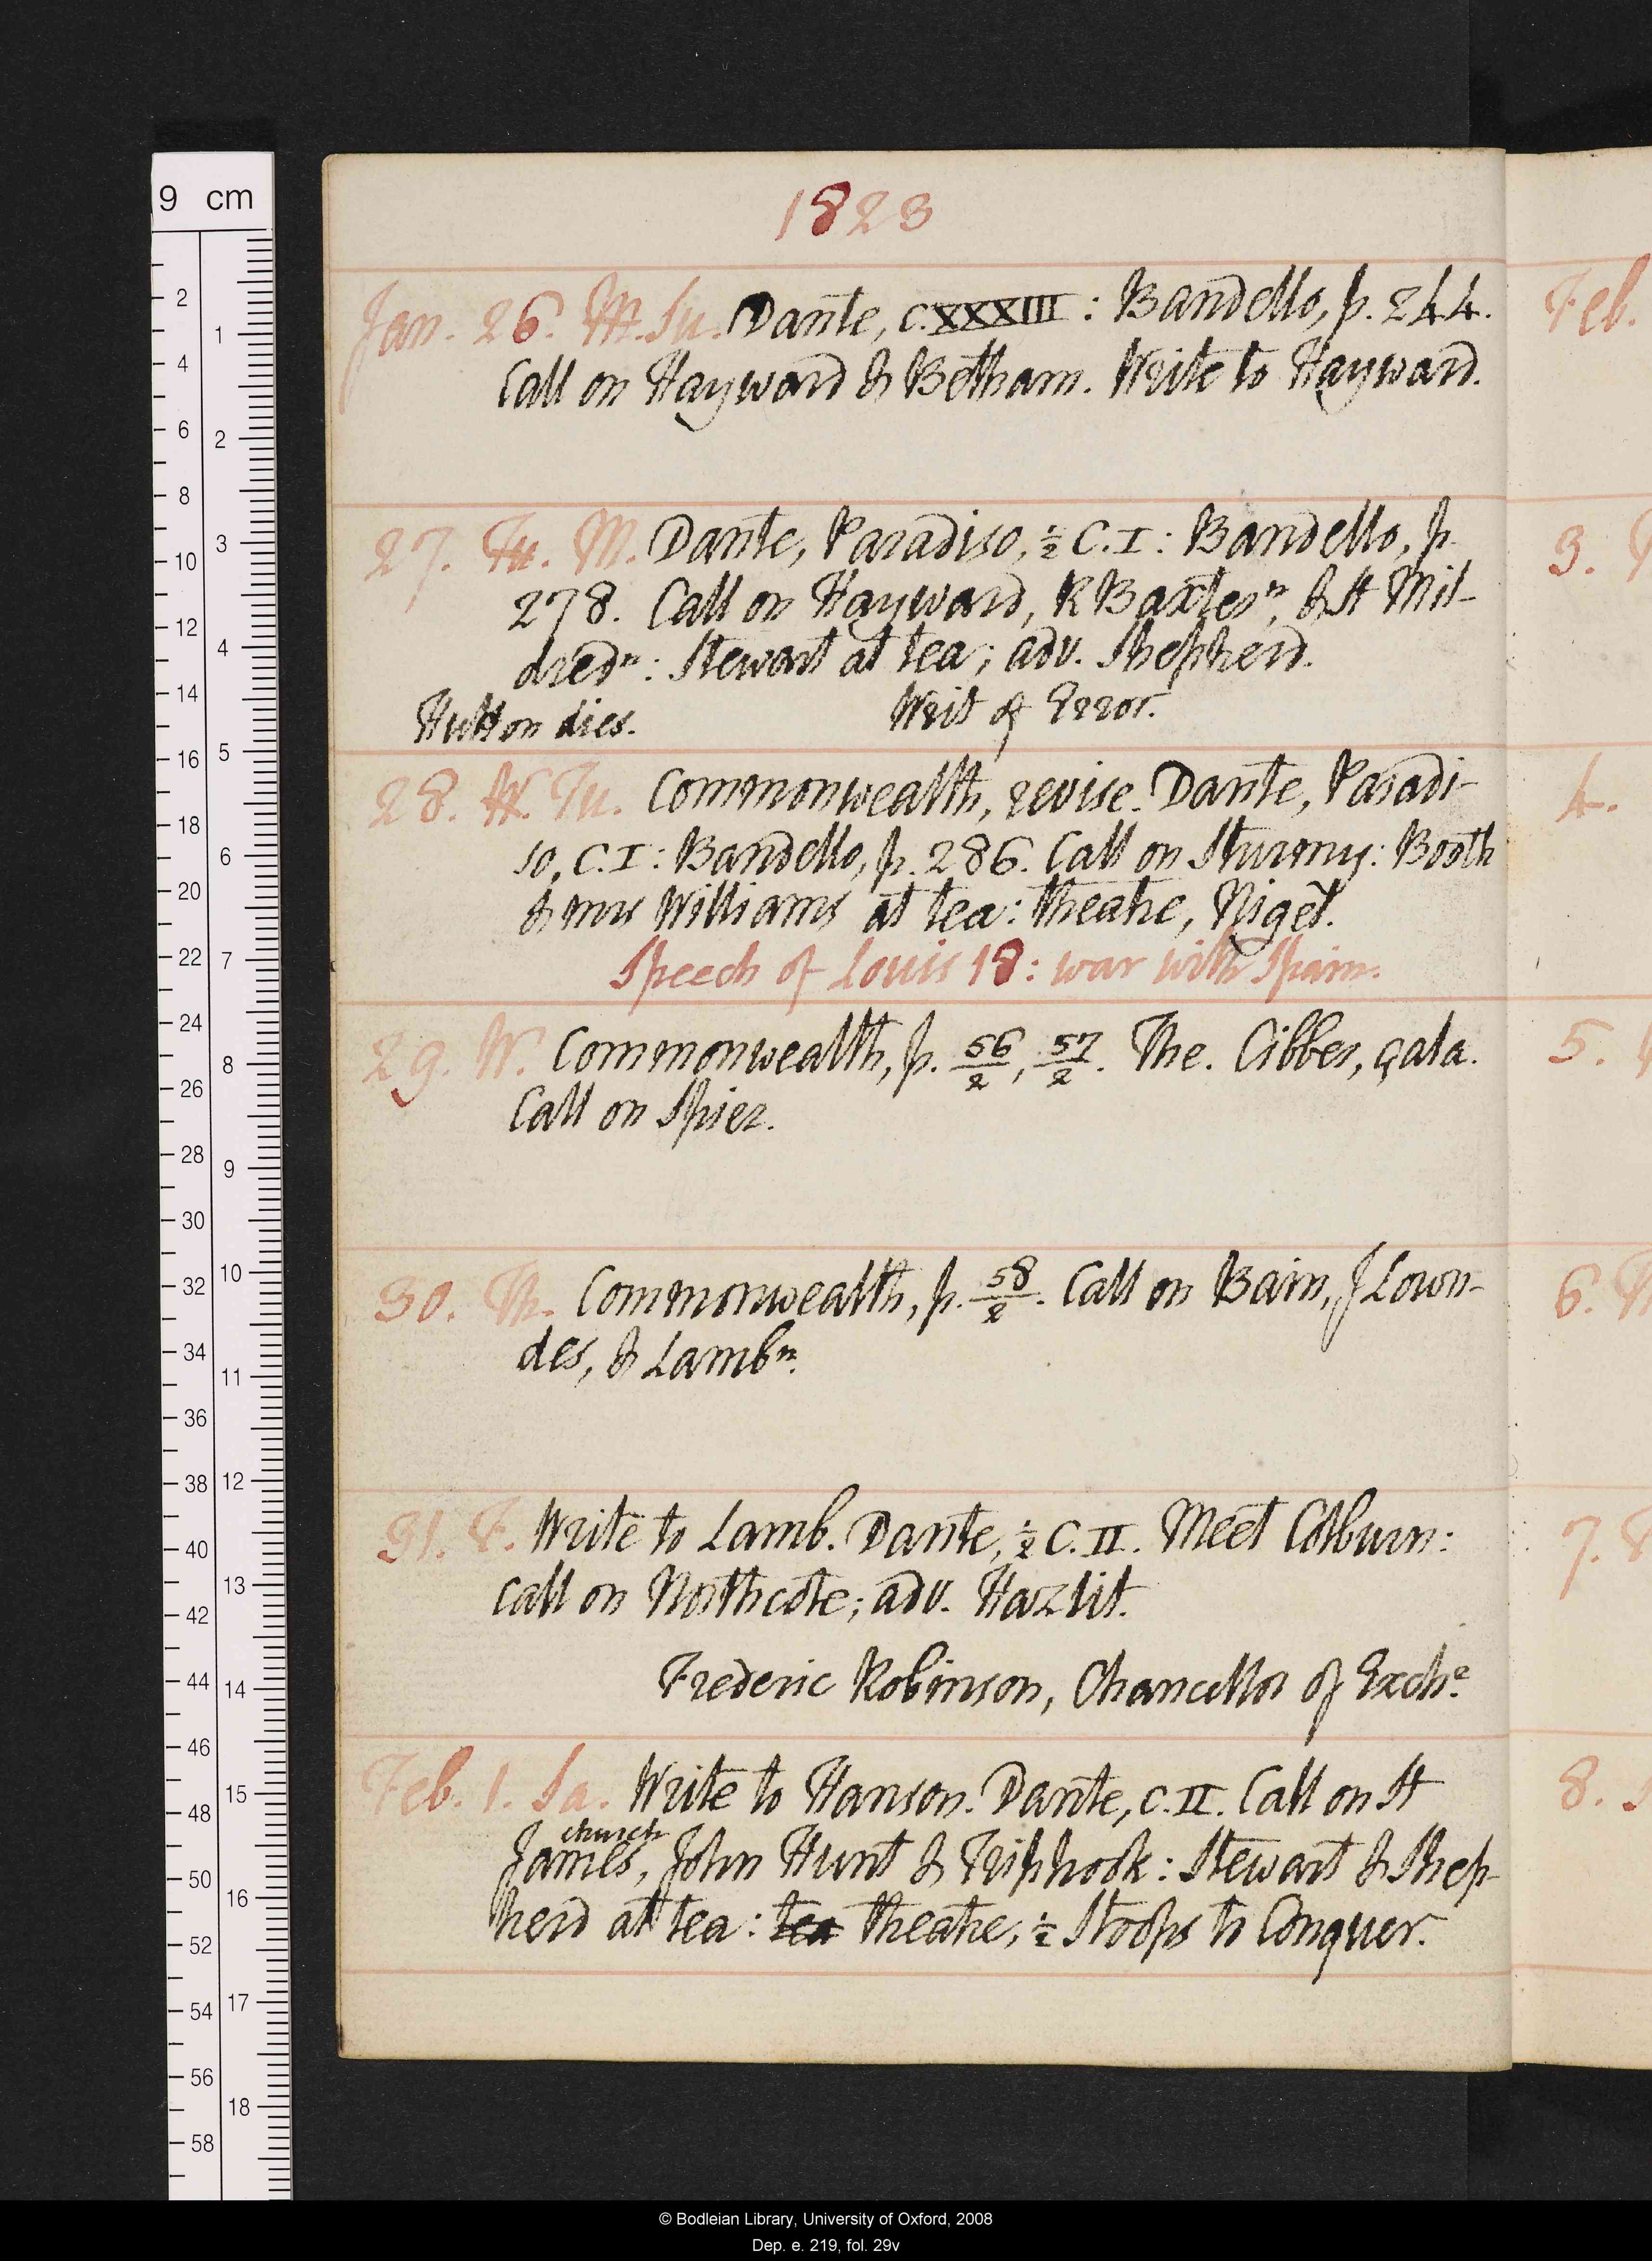 1823
Jan. 26. M. Su. Dante, c. XXXIII : Bandello, p. 244.
Call on Hayward & Betham. Write to Hayward.
27. Tu. M. Dante, Paradiso, ½ C. I : Bandello, p.
278. Call on Hayward, R Baxter n, & St Mil-
dred n : Stewart at tea; adv. Shepherd.
Hutton dies. Writ of Error.
28. W. Tu. Commonwealth, revise. Dante, Paradi-
so, C. I : Bandello, p. 286. Call on Sturmy : Booth
& mrs Williams at tea : theatre, Nigel.
Speech of Louis 18 : war with Spain.
29. W. Commonwealth, p. 56/2, 57/2. The. Cibber, gala.
Call on Spier.
30. Th. Commonwealth, p. 58/2. Call on Bain, J Lown-
des, & Lamb n.
31. F. Write to Lamb. Dante, ½ C. II. Meet Colburn :
call on Northcote; adv. Hazlit.
Frederic Robinson, Chancellor of Exchr.
Feb. 1. Sa. Write to Hanson. Dante, C. II. Call on St
church
James, John Hunt & Triphook : Stewart & Shep-
herd at tea : tea theatre, ½ Stoops to Conquer.
Feb.
3.
4.
5.
6.
7.
8.
9 cm
2
4
6
8
10
12
14
16
18
20
22
24
26
28
30
32
34
36
38
40
42
44
46
48
50
52
54
56
58
1
2
3
4
5
6
7
8
9
10
11
12
13
14
15
16
17
18
© Bodleian Library, University of Oxford, 2008
Dep. e. 219, fol. 29v